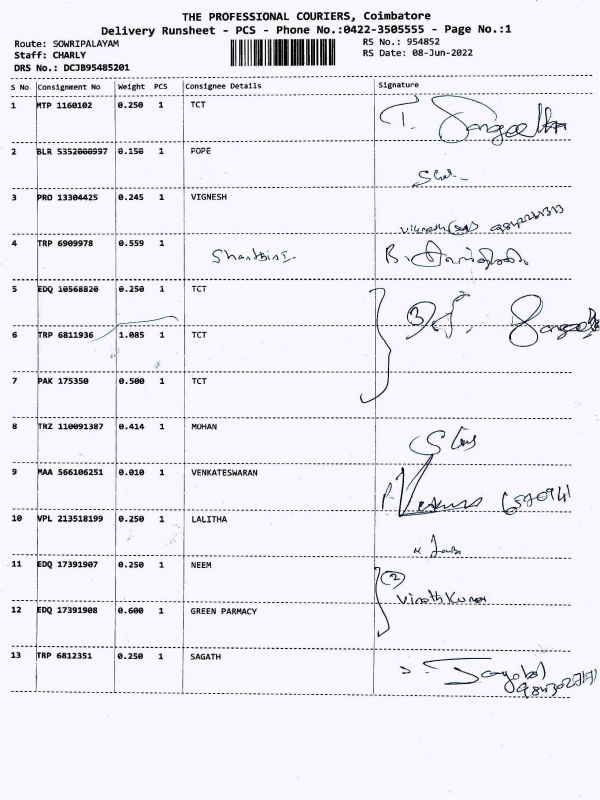 THE PROFESSIONAL COURIERS, Coimbatore
Delivery Runsheet - PCS - Phone No.:0422-3505555 - Page No.:1
Route: SOWRIPALAYAM
RS No.: 954852
Staff: CHARLY
RS Date: 08-Jun-2022
DRS No.: DCJB95485201
S No Consignment No Weight PCS Consignee Details Signature
1 MTP 1160102 0.250 1 TCT
2 BLR 5352000997 0.150 1 POPE
3 PRO 13304425 0.245 1 VIGNESH
4 TRP 6909978 0.559 1
5 EDQ 10568820 0.250 1 TCT
6 TRP 6811936 1.085 1 TCT
7 PAK 175350 0.500 1 TCT
8 TRZ 110091387 0.414 1 MOHAN
9 MAA 566106251 0.010 1 VENKATESWARAN
10 VPL 213518199 0.250 1 LALITHA
11 EDQ 17391907 0.250 1 NEEM
2
Vinoth Kumar
12 EDQ 17391908 0.600 1 GREEN PARMACY
13 TRP 6812351 0.250 1 SAGATH